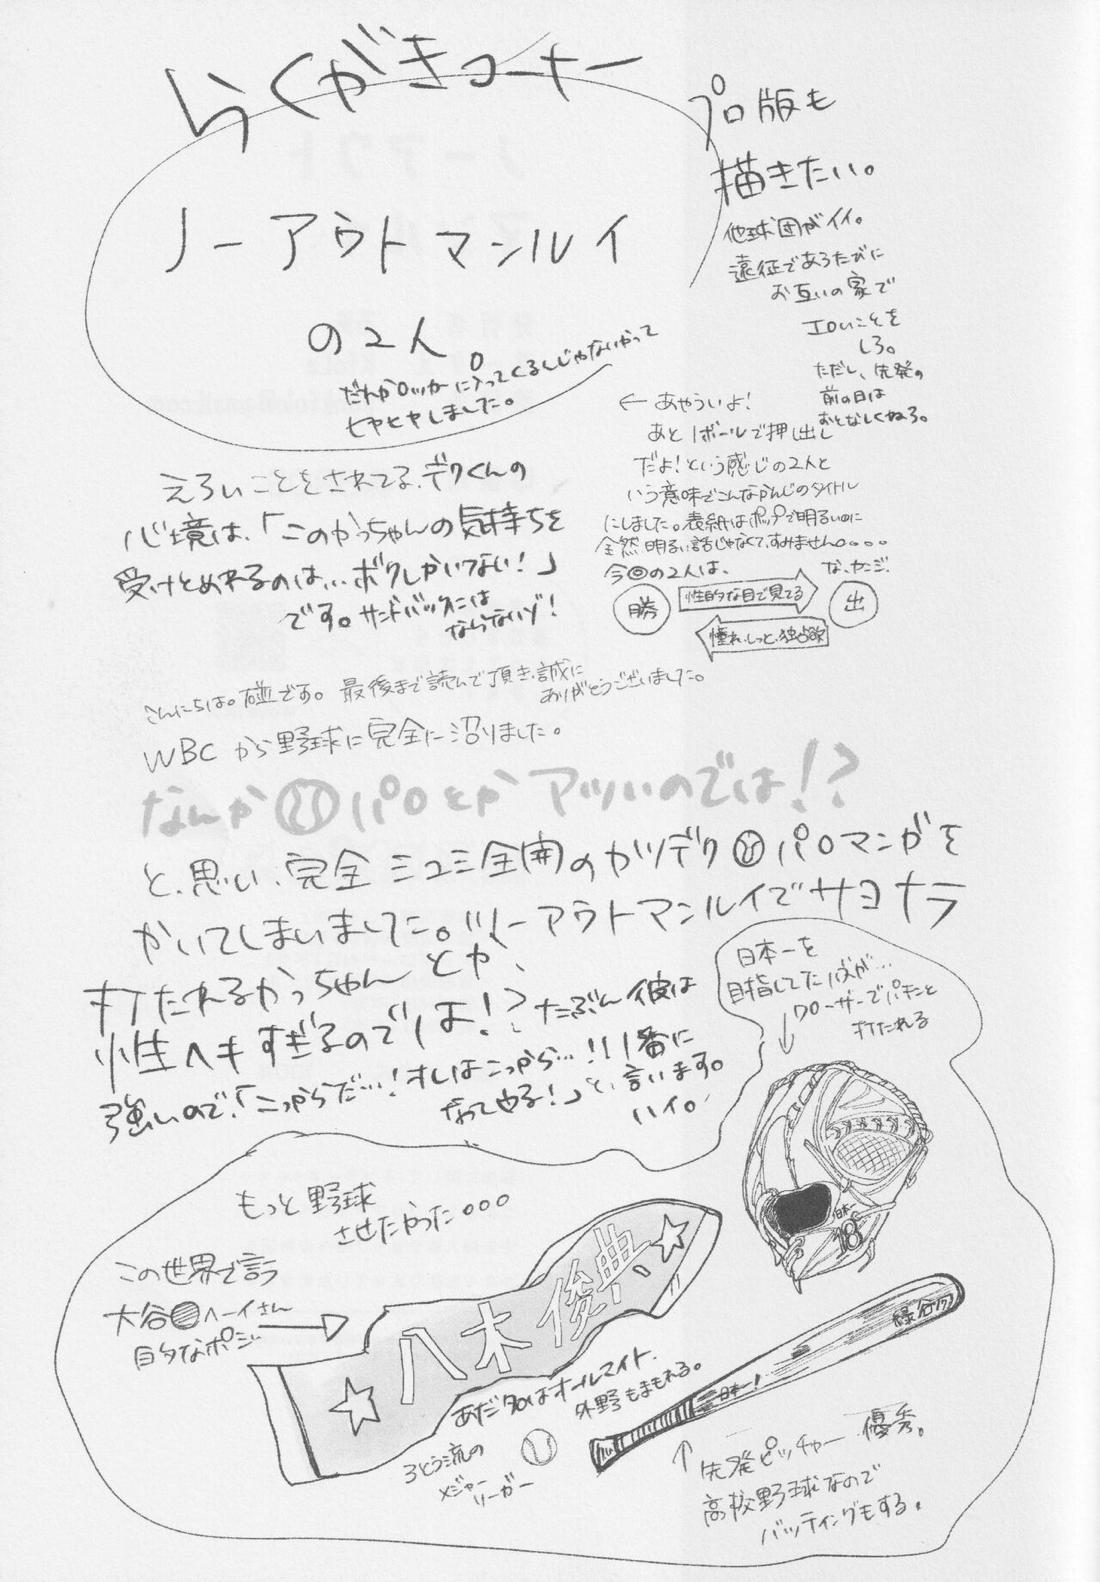 らくがきコーナー
ノーアウトマンルイ
の2人。
だれかロッカーに入ってくるんじゃないかって
ヒヤヒヤしました。
プロ版も
描きたい。
他球団がイイ。
遠征であうたびに
お互いの家で
エロいことを
しろ。
ただし、先発の
前の日は
おとなしくねろ。
← あやういよ!
あと1ボールで押し出し
だよ!という感じの2人と
いう意味でこんなかんじのタイトル
にしました。表紙はポップで明るいのに
全然明るい話じゃなくてすみません。。。。
今回の2人は、
な、カンジ。
勝
性的な目で見てる
出
憧れ、しっと、独占欲
えろいことをされてる、デクくんの
心境は、「このかっちゃんの気持ちを
受けとめれるのは…ボクしかいない!」
です。サンドバックには
ならないゾ!
こんにちは。碰です。最後まで読んで頂き、誠に
ありがとうございました。
WBCから野球に完全に沼りました。
なんか パロとかアツいのでは!?
と、思い、完全ミユミ全開のカツデク パロマンガを
かいてしまいました。ノーアウトマンルイでサヨナラ
打たれるかっちゃんとか、
性ヘキすぎるのでは!?たぶん彼は
強いので、「こっからだ…!オレはこっから…!!1番に
なってやる!」と、言います。
ハイ。
日本一を
目指してたハズが…
クローザーでパキンと
打たれる
もっと野球
させたかった。。。
この世界で言う
大谷 ヘーイさん
的なポジ
八木俊典
あだ名はオールマイト。
外野もまもれる。
3とう流の
メジャー
リーガー
日本一
18
緑谷
日本一!
先発ピッチャー 優秀。
高校野球なので
バッティングもする。